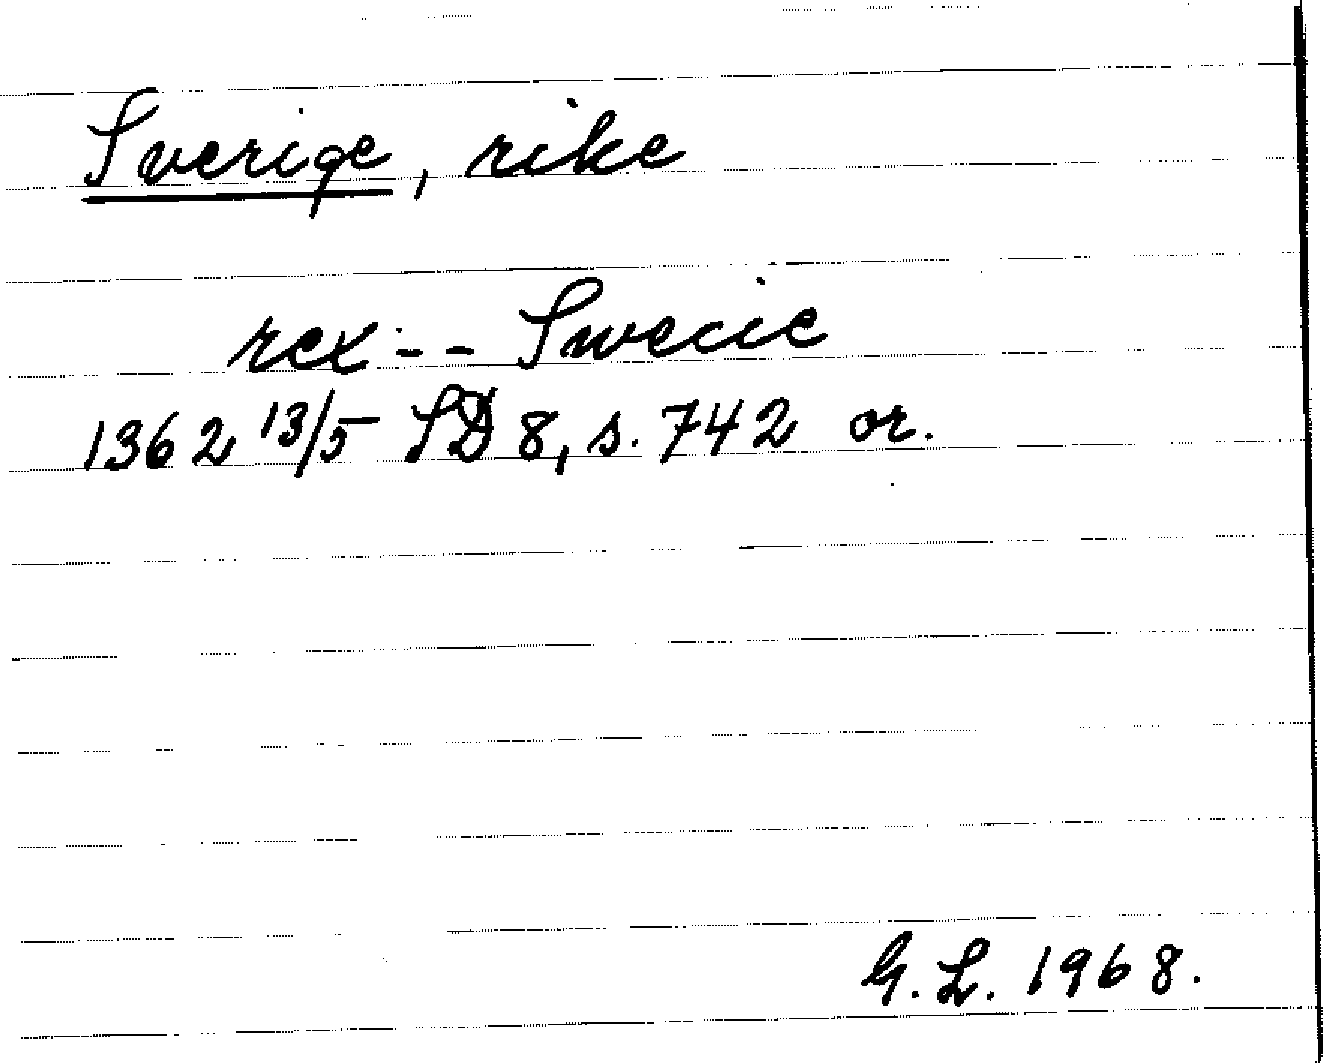 Sverige, rike
rex -- Swecie
1362 13/5 SD 8, s. 742 or.
G. L. 1968.